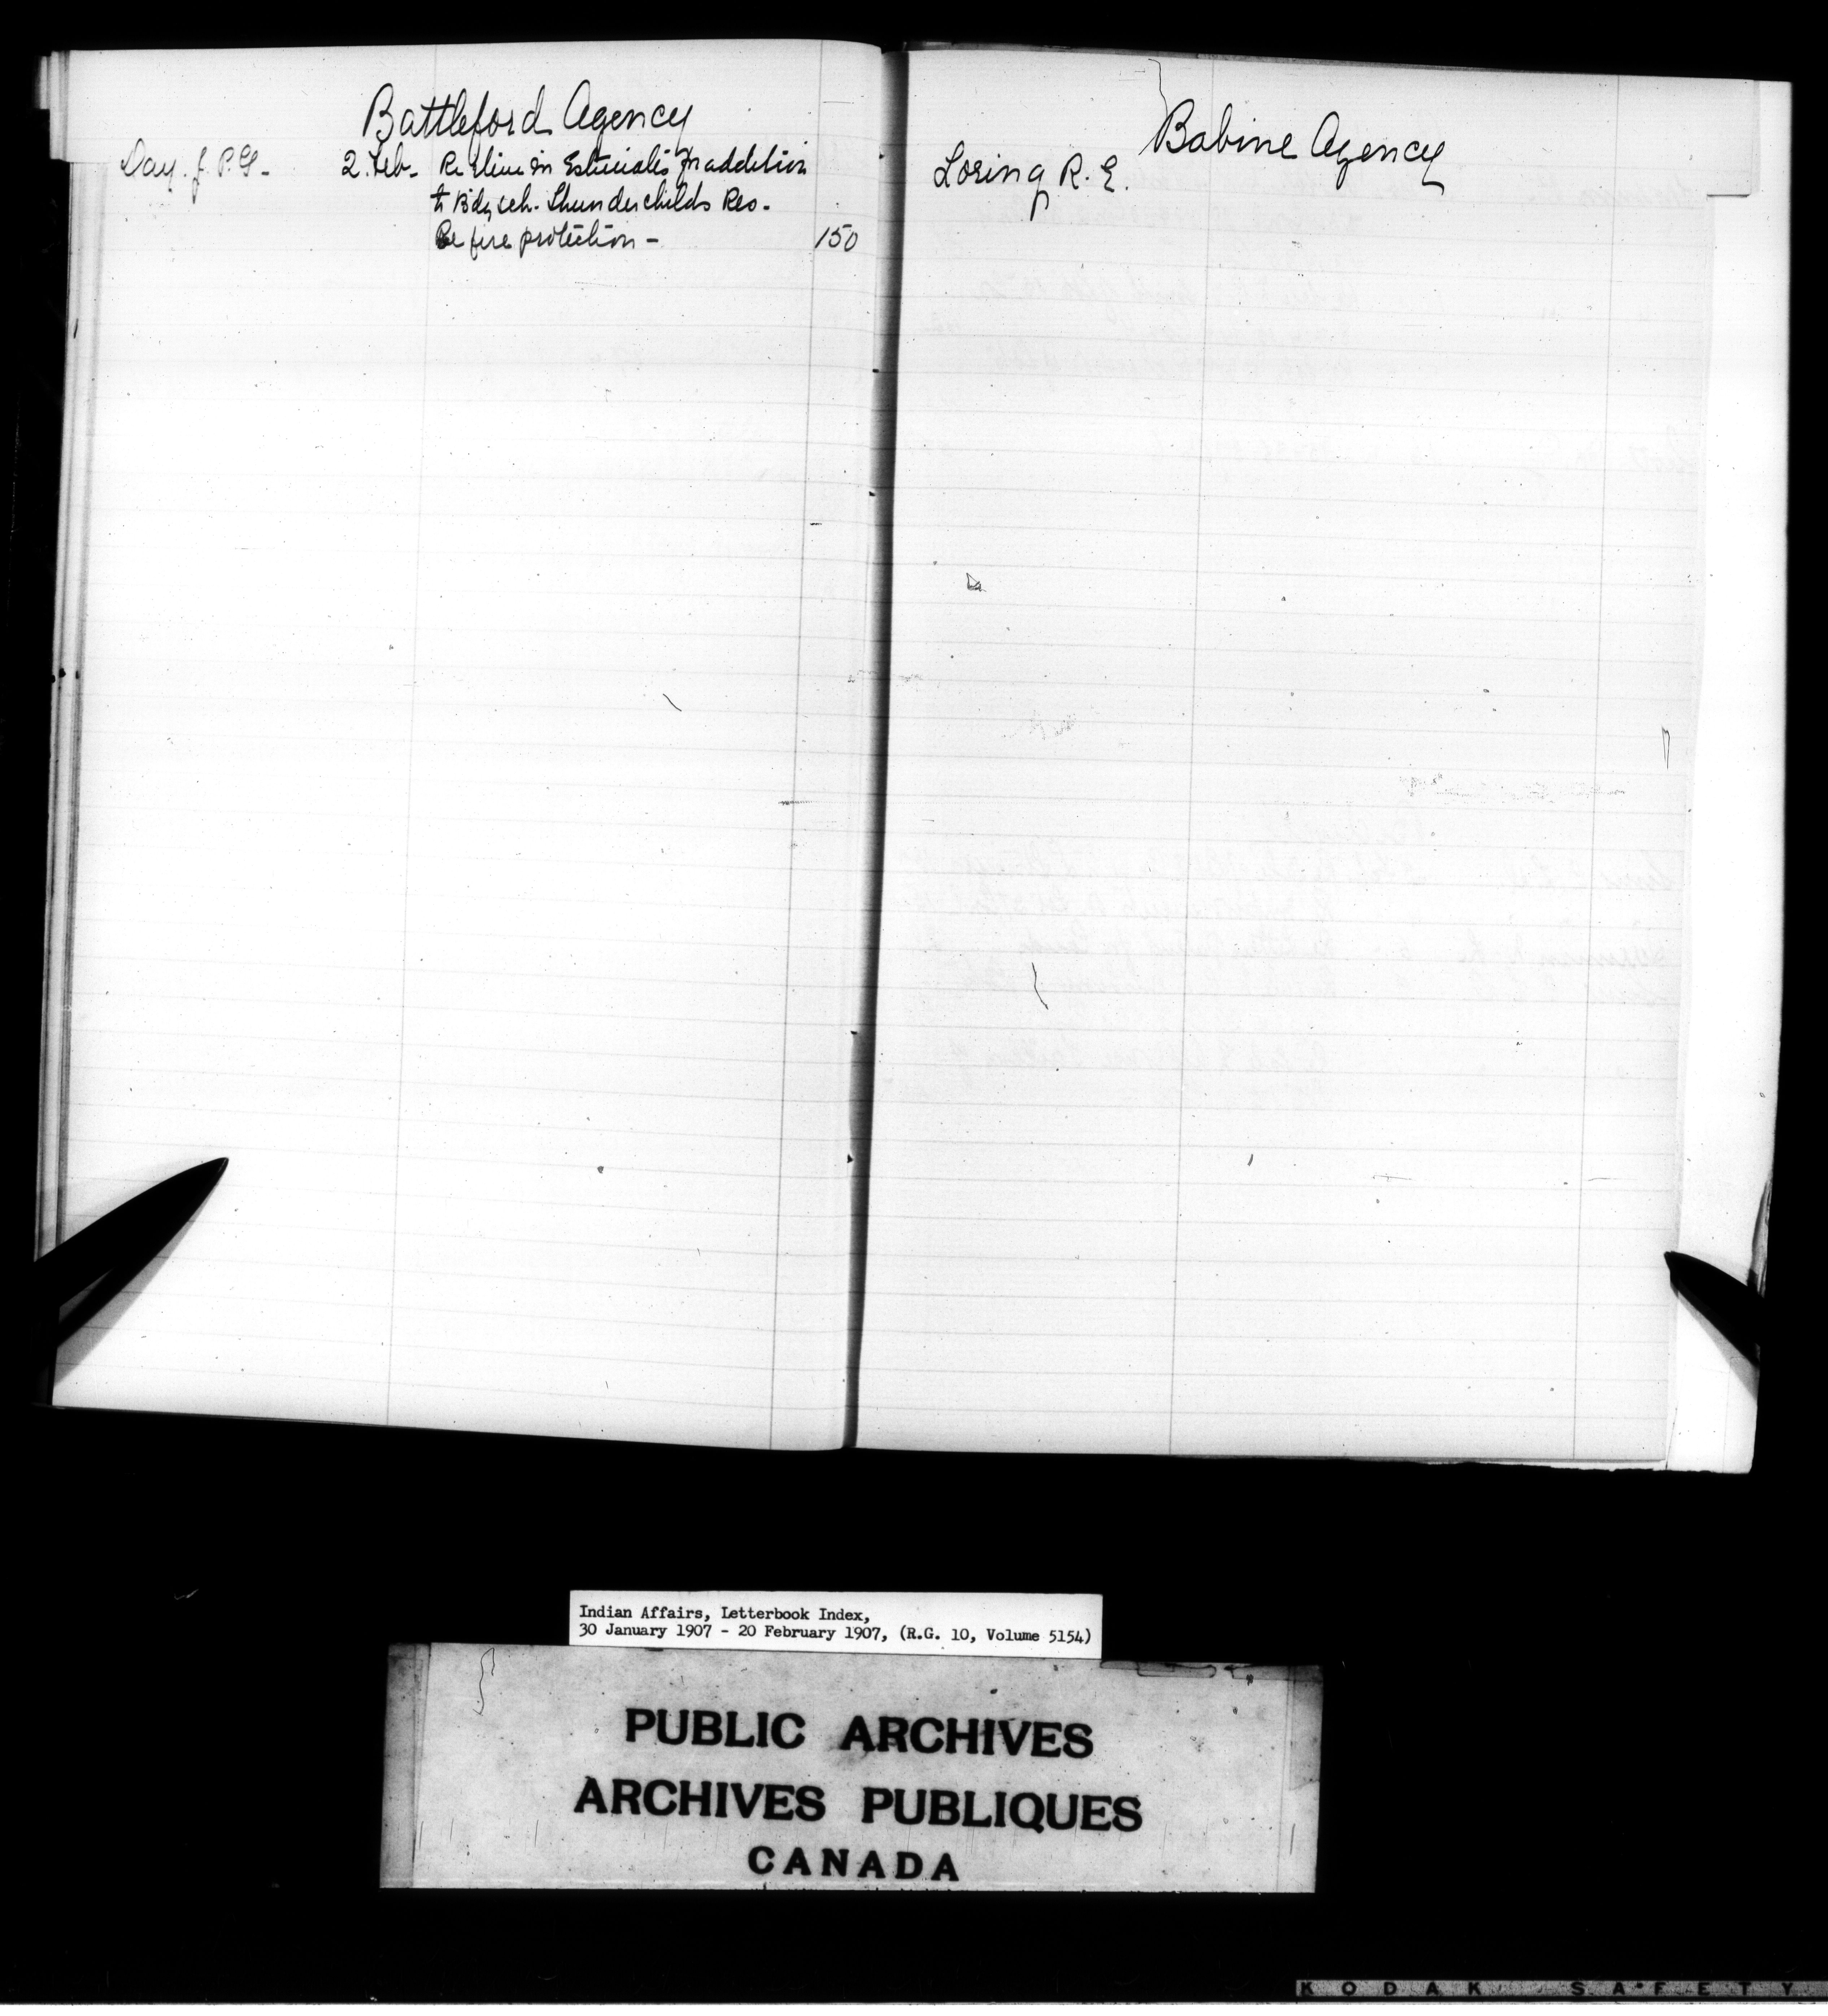 Battleford Agency
Day. J. P. G. - 2. Feb. Re in Estimates for addition
to Bdg sch. Thunderchilds Res.
Re fire protection - 150
Babine Agency
Loring R. E.
Indian Affairs, Letterbook Index,
30 January 1907 - 20 February 1907, (R.G. 10, Volume 5154)
PUBLIC ARCHIVES
ARCHIVES PUBLIQUES
CANADA
KODAK SAFETY